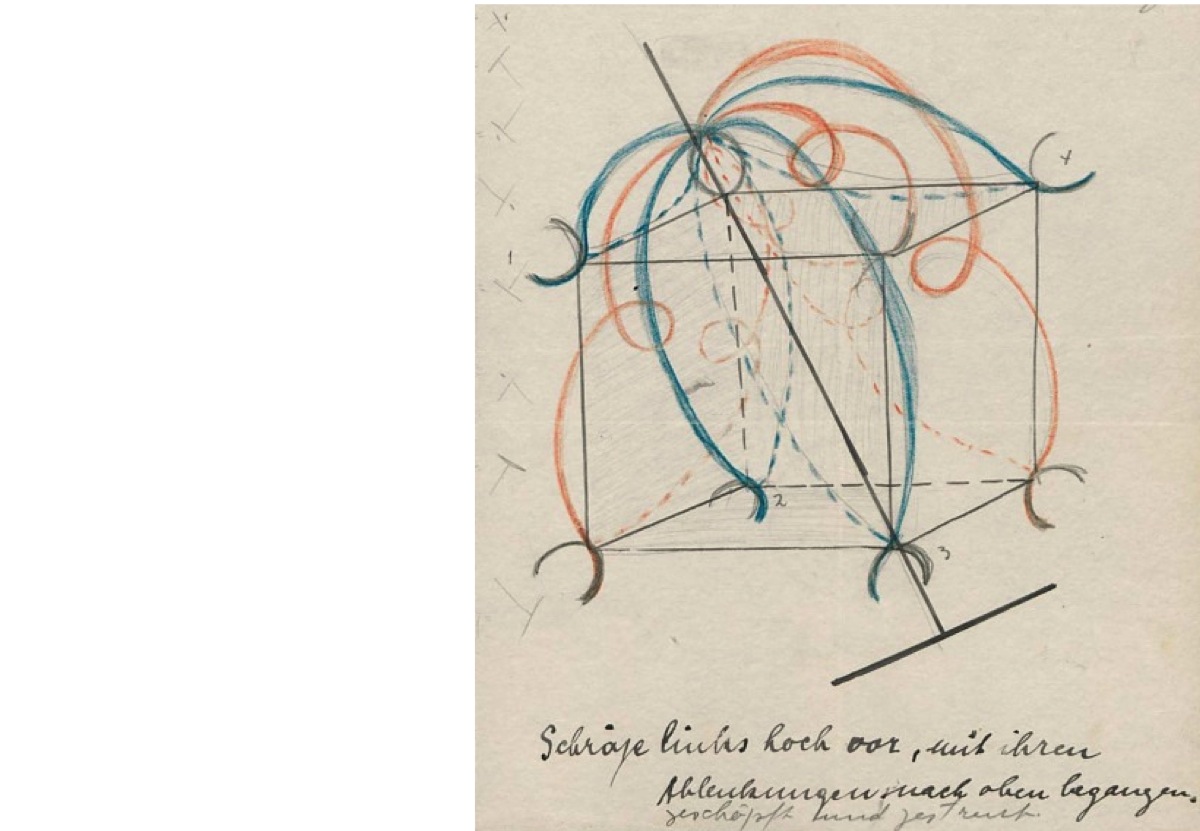 4
1
2
3
Schräge links hoch vor, mit ihren
Ablenkungen nach oben begangen.
geschöpft und gestreut.